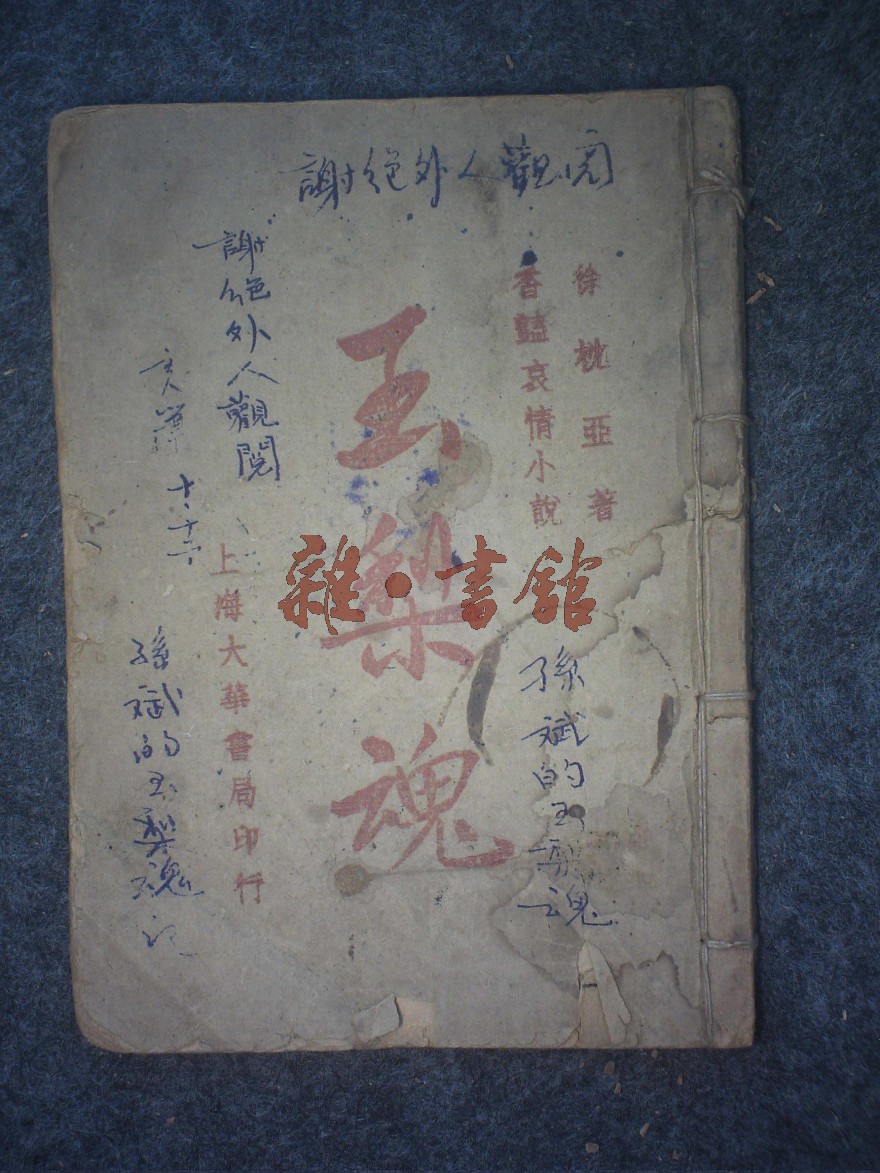 謝絕外人觀閱
徐枕亞著
香豔哀情小說
玉梨魂
上海大華書局印行
謝絕外人觀閱
十、十二
孫斌的玉梨魂
孫斌的玉梨魂
雜·書館